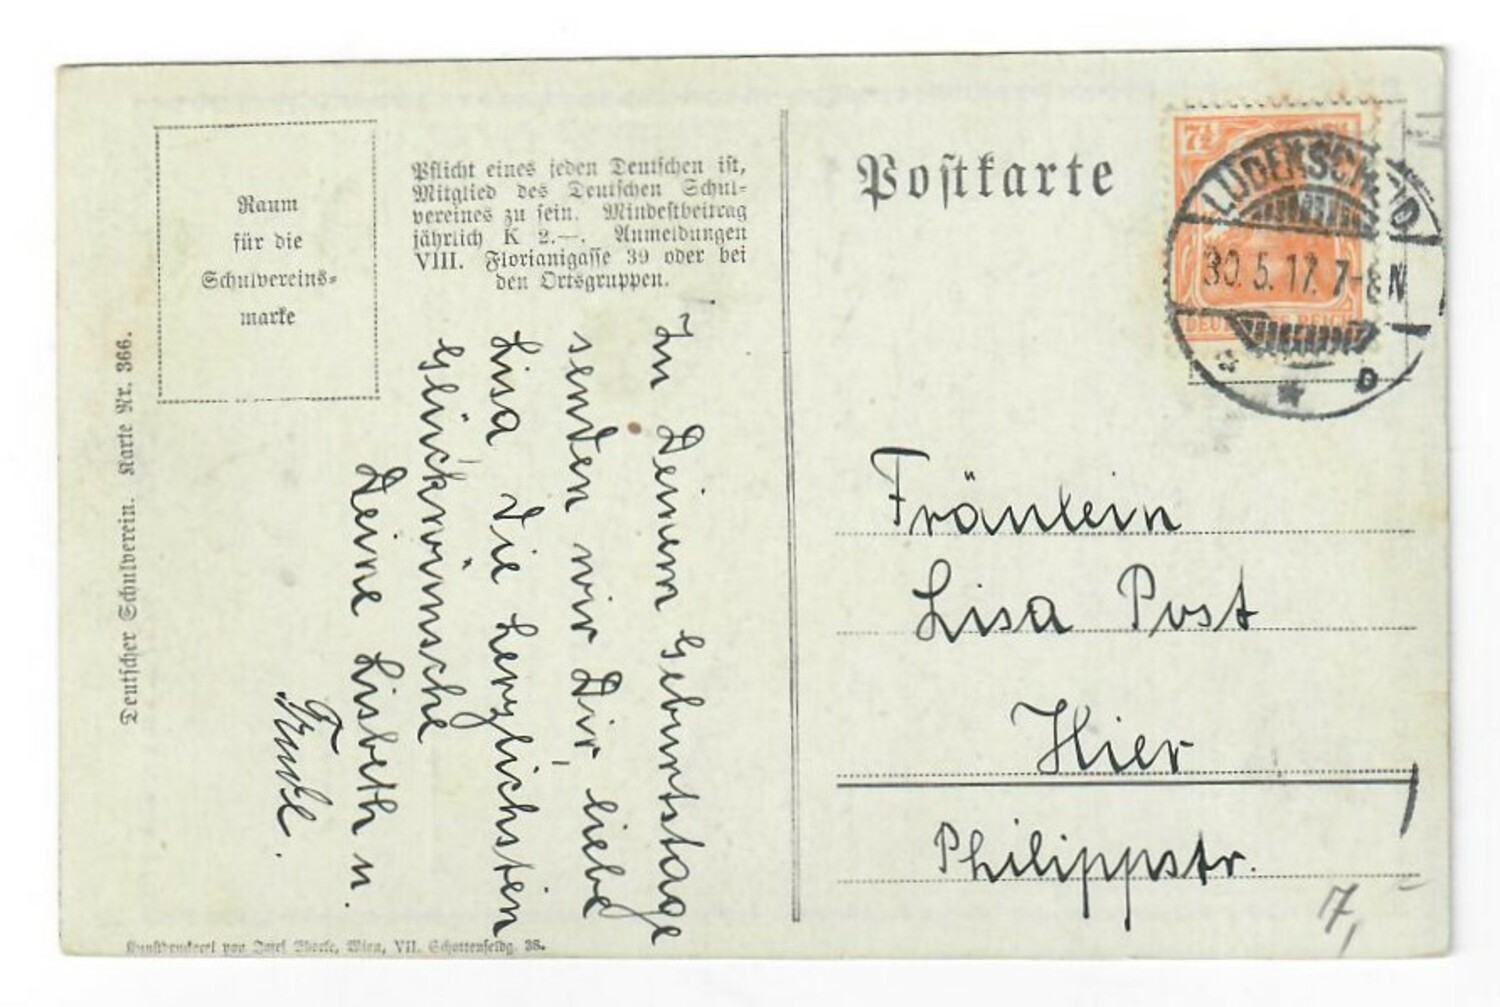 Raum
für die
Schulvereins-
marke
Pflicht eines jeden Deutschen ist,
Mitglied des Deutschen Schul-
vereines zu sein. Mindestbeitrag
jährlich K 2.—. Anmeldungen
VIII. Florianigasse 39 oder bei
den Ortsgruppen.
Deutscher Schulverein. Karte Nr. 366.
Zu Deinem Geburtstage
senden wir Dir, liebe
Lisa, die herzlichsten
Glückwünsche
Deine Lisbeth u.
Kunstdruckerei von Josef Eberle, Wien, VII. Schottenfeldg. 38.
Postkarte
7½
LÜDENSCHEID
30.5.17. 7-8 N
DEUTSCHES REICH
* D
Fräulein
Lisa Post
Hier
Philippstr.
7,